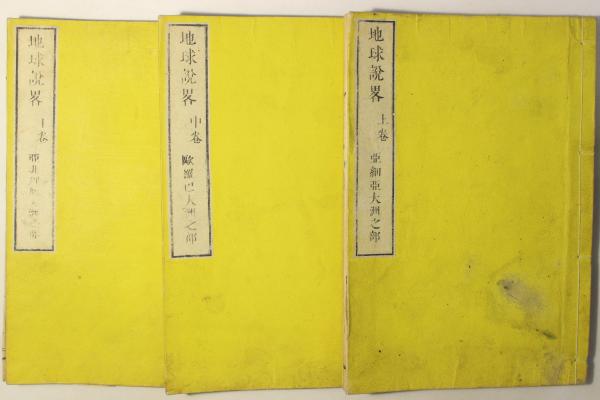 地球說畧 上卷 亞細亞大洲之部
地球說畧 中卷 歐羅巴大洲之部
地球說畧 下卷 亞非理駕大洲之部